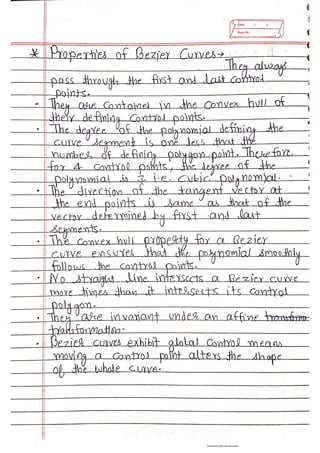 * Properties of Bezier Curves →
They always
pass through the first and last control
points.
• They are contained in the convex hull of
their defining control points.
• The degree of the polynomial defining the
curve segment is one less that the
number of defining polygon point. Therefore,
for 4 control points, the degree of the
polynomial is 3 i.e. cubic polynomial.
• The direction of the tangent vector at
the end points is same as that of the
vector determined by first and last
segments.
• The convex hull property for a Bezier
curve ensures that the polynomial smoothly
follows the control points.
• No straight line intersects a Bezier curve
more times than it intersects its control
polygon.
• They are invariant under an affine
transformation.
• Bezier curves exhibit global control means
moving a control point alters the shape
of the whole curve.